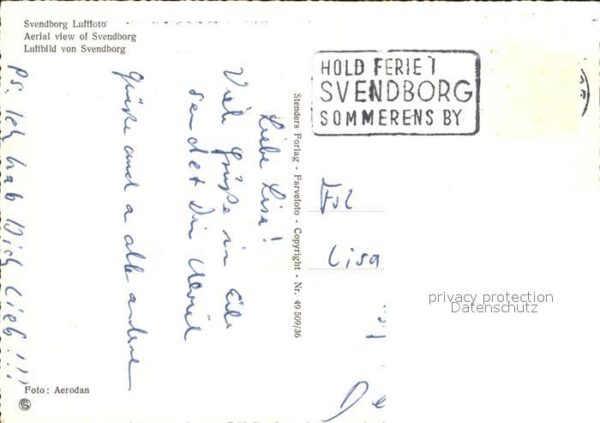 Svendborg Luftfoto
Aerial view of Svendborg
Luftbild von Svendborg
HOLD FERIE I
SVENDBORG
SOMMERENS BY
Liebe Lisa!
Viele Grüße in Eile
sendet Dir
Grüße and a alle andern
PS. Ich hab Dich lieb!!!
Stenders Forlag - Farvefoto - Copyright - Nr. 49 509/36
Frl
Lisa
De
privacy protection
Datenschutz
Foto: Aerodan